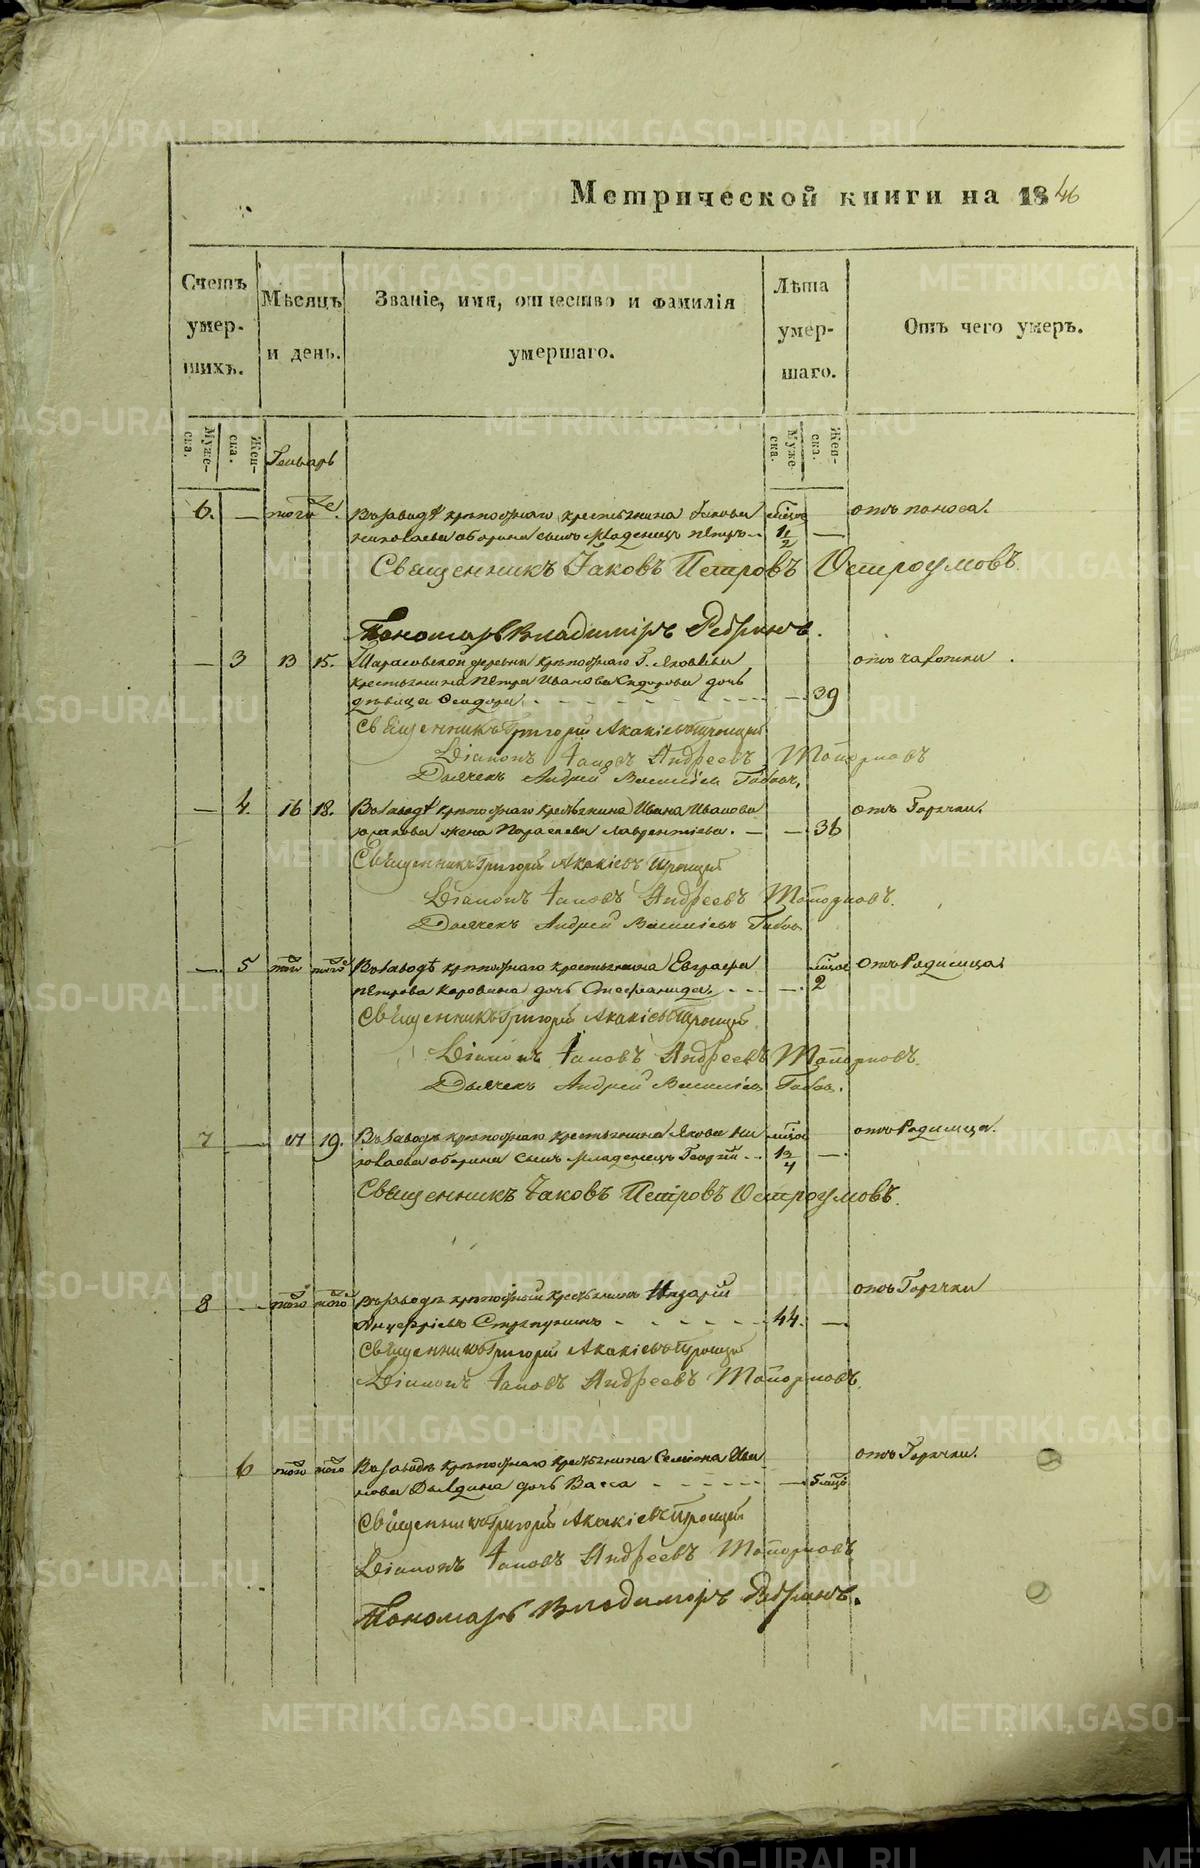 Метрической книги на 1846
Счетъ умер- шихъ.
Мѣсяцъ и день.
Званіе, имя, отчество и фамилія умершаго.
Лѣта умер- шаго.
Отъ чего умеръ.
Муже- ска.
Жен- ска.
Муже- ска.
Жен- ска.
Генварь
6. — того же Въ заводѣ крѣпостнаго крестьянина Іакова мѣсяц отъ поноса.
сынъ младенецъ Петръ 1 1/2 —
Священникъ Іаковъ Петровъ Остроумовъ
Пономарь Владимиръ Ребринъ.
— 3 13 15. Тарасовской деревни крѣпостнаго Г. Яковлева отъ чахотки.
крестьянина Петра Иванова Сидорова дочь
дѣвица Ѳеодора — 39
Священникъ Григорій Акакіевъ Троицкій
Діаконъ Іаковъ Андреевъ Топорковъ
Дьячекъ Андрей Василіевъ
— 4. 16 18. Въ заводѣ крѣпостнаго крестьянина Ивана Иванова отъ Горячки.
жена Параскева Лаврентіева. — — 36
Священникъ Григорій Акакіевъ Троицкій
Діаконъ Іаковъ Андреевъ Топорковъ.
Дьячекъ Андрей Василіевъ
— 5 того того же Въ заводѣ крѣпостнаго крестьянина Евграфа мѣсяц отъ Родимца.
Петрова Коровина дочь Стефанида. — 2
Священникъ Григорій Акакіевъ Троицкій
Діаконъ Іаковъ Андреевъ Топорковъ.
Дьячекъ Андрей Василіевъ
7 — 17 19. Въ заводѣ крѣпостнаго крестьянина Якова Ни мѣсяц отъ Родимца.
колаева сынъ младенецъ Георгій —
Священникъ Іаковъ Петровъ Остроумовъ.
8 — того того же Въ заводѣ крѣпостной крестьянинъ Назарій отъ Горячки
44. —
Священникъ Григорій Акакіевъ Троицкій
Діаконъ Іаковъ Андреевъ Топорковъ.
6 того того Въ заводѣ крѣпостнаго крестьянина Семіона Ива отъ Горячки.
нова дочь Васса — 5 мѣсяц
Священникъ Григорій Акакіевъ Троицкій
Діаконъ Іаковъ Андреевъ Топорковъ
Пономарь Владимиръ Ребринъ.
METRIKI.GASO-URAL.RU